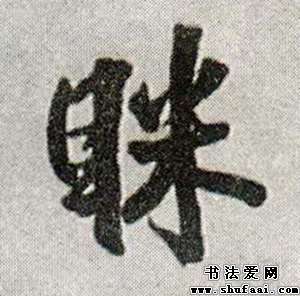 眯
书法爱网
www.shufaai.com